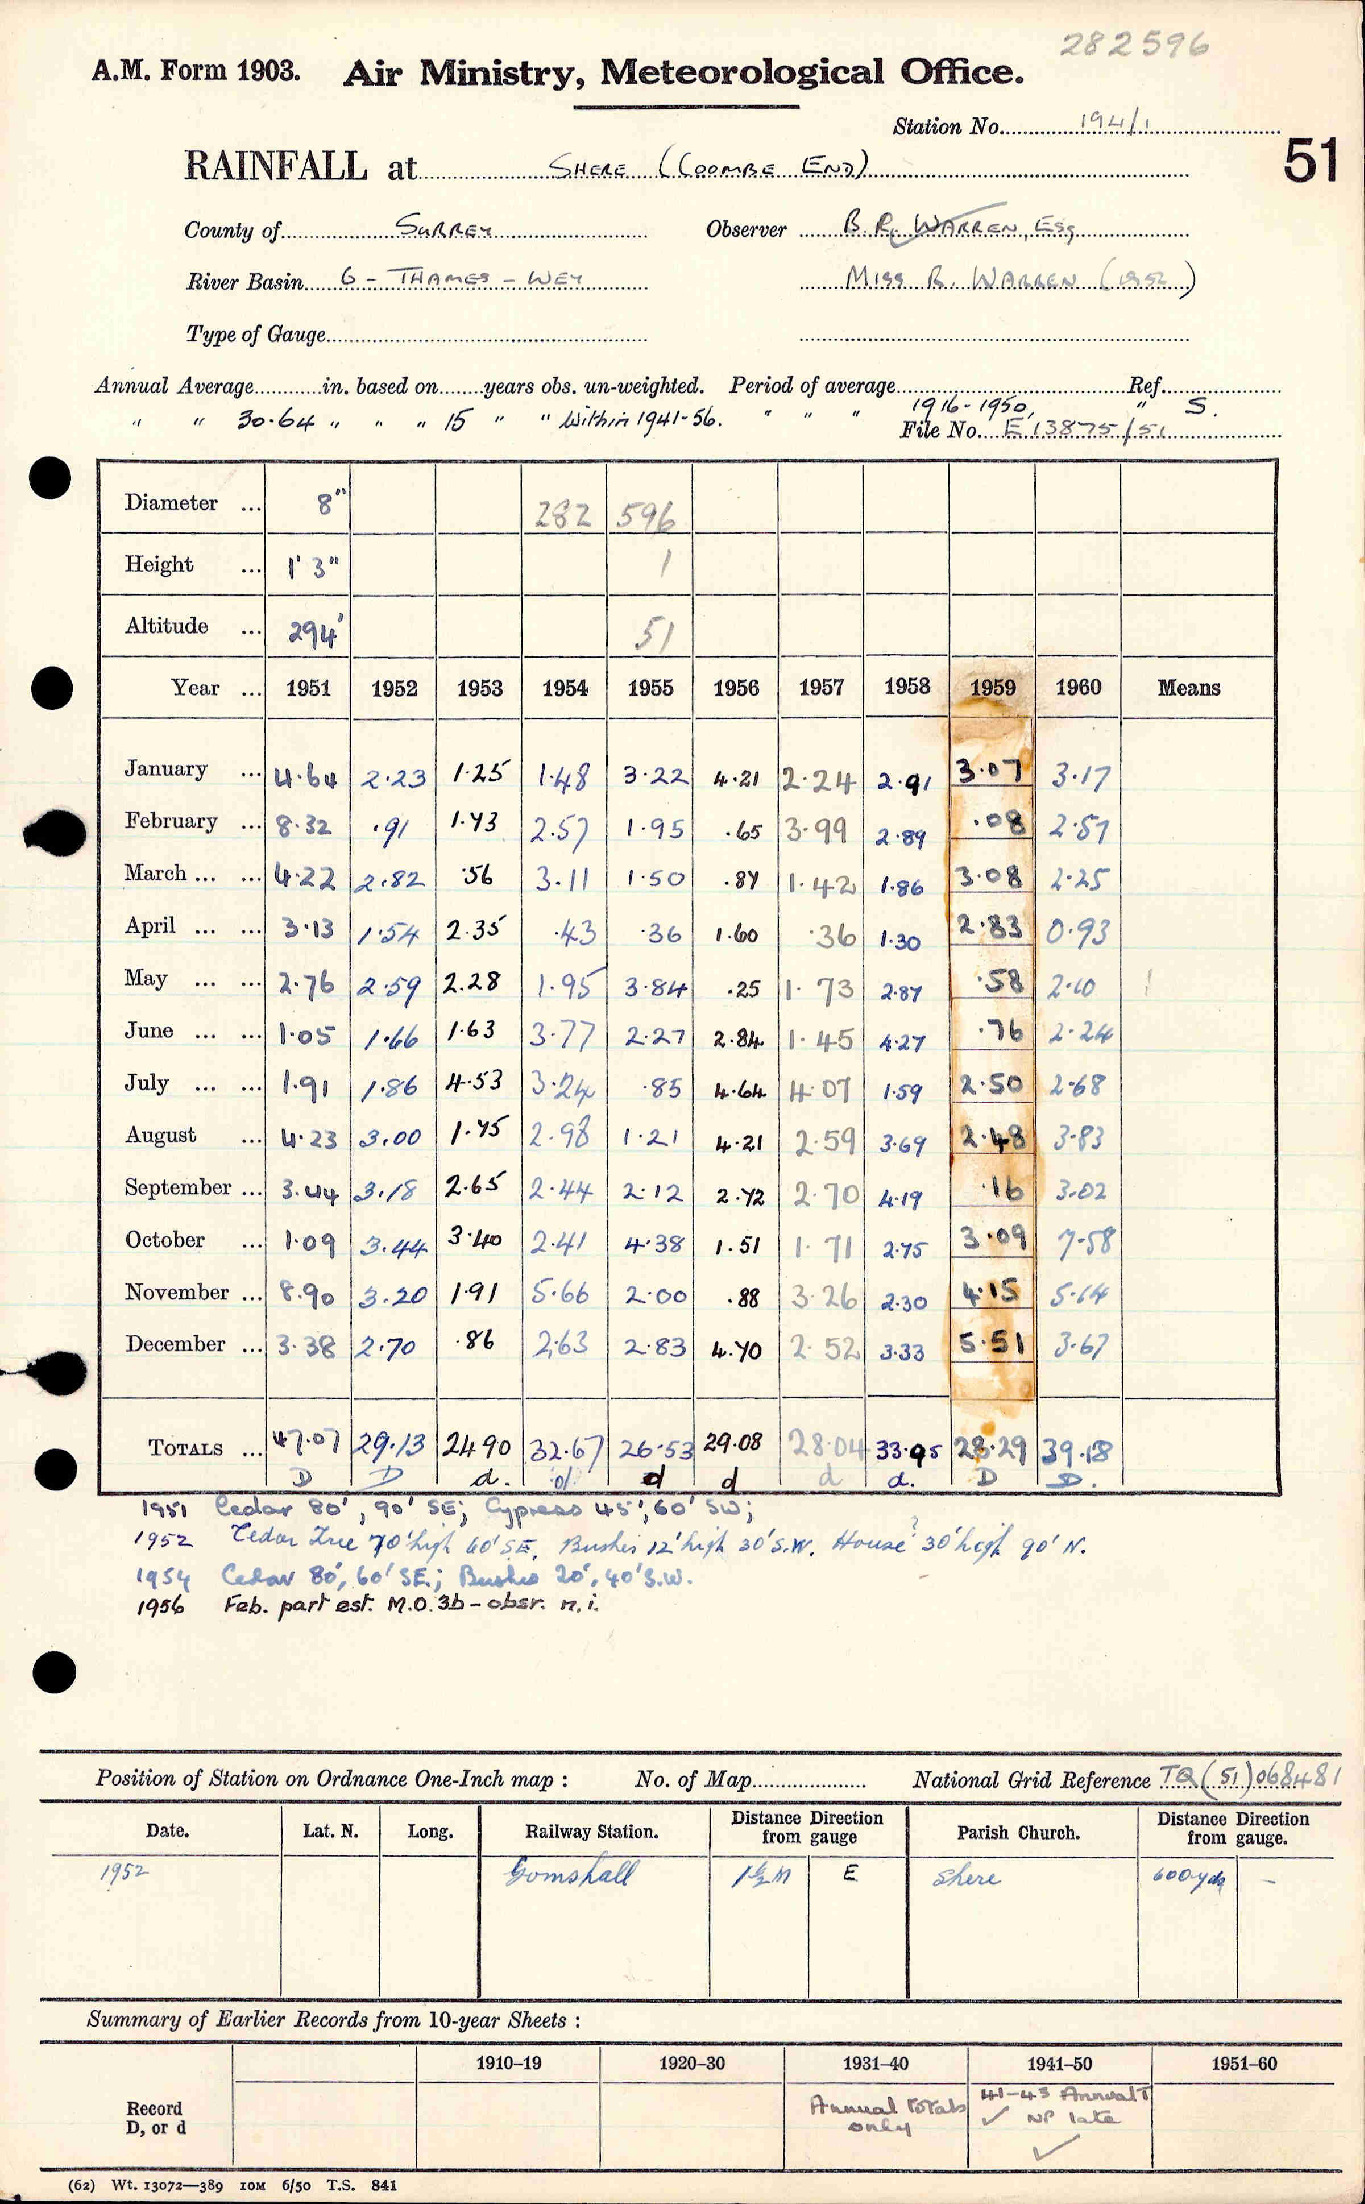 282596
A.M. Form 1903. Air Ministry, Meteorological Office.
Station No. 194/1
51
RAINFALL at SHERE (COOMBE END)
County of SURREY Observer B. R. WARREN, ESQ
River Basin 6 - THAMES - WEY MISS R. WARREN (1952)
Type of Gauge
Annual Average in. based on years obs. un-weighted. Period of average Ref.
" " 30.64 " " " 15 " " Within 1941-56. " " " 1916-1950, " S.
File No. E 13875/51
Diameter ... 8" 282 596
Height ... 1' 3" 1
Altitude ... 294' 51
Year ... 1951 1952 1953 1954 1955 1956 1957 1958 1959 1960 Means
January ... 4.64 2.23 1.25 1.48 3.22 4.21 2.24 2.91 3.07 3.17
February ... 8.32 .91 1.73 2.57 1.95 .65 3.99 2.89 .08 2.57
March ... ... 4.22 2.82 .56 3.11 1.50 .87 1.42 1.86 3.08 2.25
April ... ... 3.13 1.54 2.35 .43 .36 1.60 .36 1.30 2.83 0.93
May ... ... 2.76 2.59 2.28 1.95 3.84 .25 1.73 2.87 .58 2.10
June ... ... 1.05 1.66 1.63 3.77 2.27 2.84 1.45 4.27 .76 2.24
July ... ... 1.91 1.86 4.53 3.24 .85 4.64 4.07 1.59 2.50 2.68
August ... 4.23 3.00 1.75 2.98 1.21 4.21 2.59 3.69 2.48 3.83
September ... 3.44 3.18 2.65 2.44 2.12 2.72 2.70 4.19 .16 3.02
October ... 1.09 3.44 3.40 2.41 4.38 1.51 1.71 2.75 3.09 7.58
November ... 8.90 3.20 1.91 5.66 2.00 .88 3.26 2.30 4.15 5.14
December ... 3.38 2.70 .86 2.63 2.83 4.70 2.52 3.33 5.51 3.67
TOTALS ... 47.07 29.13 24.90 32.67 26.53 29.08 28.04 33.95 28.29 39.18
D D d. d d d d d. D D.
1951 Cedar 80', 90' SE; Cypress 45', 60' SW;
1952 Cedar Tree 70' high 60' S.E. Bushes 12' high 30' S.W. House? 30' high 90' N.
1954 Cedar 80', 60' SE.; Bushes 20', 40' S.W.
1956 Feb. part est. M.O.3b - obsr. n.i.
Position of Station on Ordnance One-Inch map : No. of Map National Grid Reference TQ (51) 068481
Date. Lat. N. Long. Railway Station. Distance from Direction gauge Parish Church. Distance from Direction gauge.
1952 Gomshall 1½ M E Shere 600 yds -
Summary of Earlier Records from 10-year Sheets :
1910–19 1920–30 1931–40 1941–50 1951–60
Record D, or d Annual totals only 41-45 Annual T ✓ NP late ✓
(62) Wt. 13072—389 10M 6/50 T.S. 841